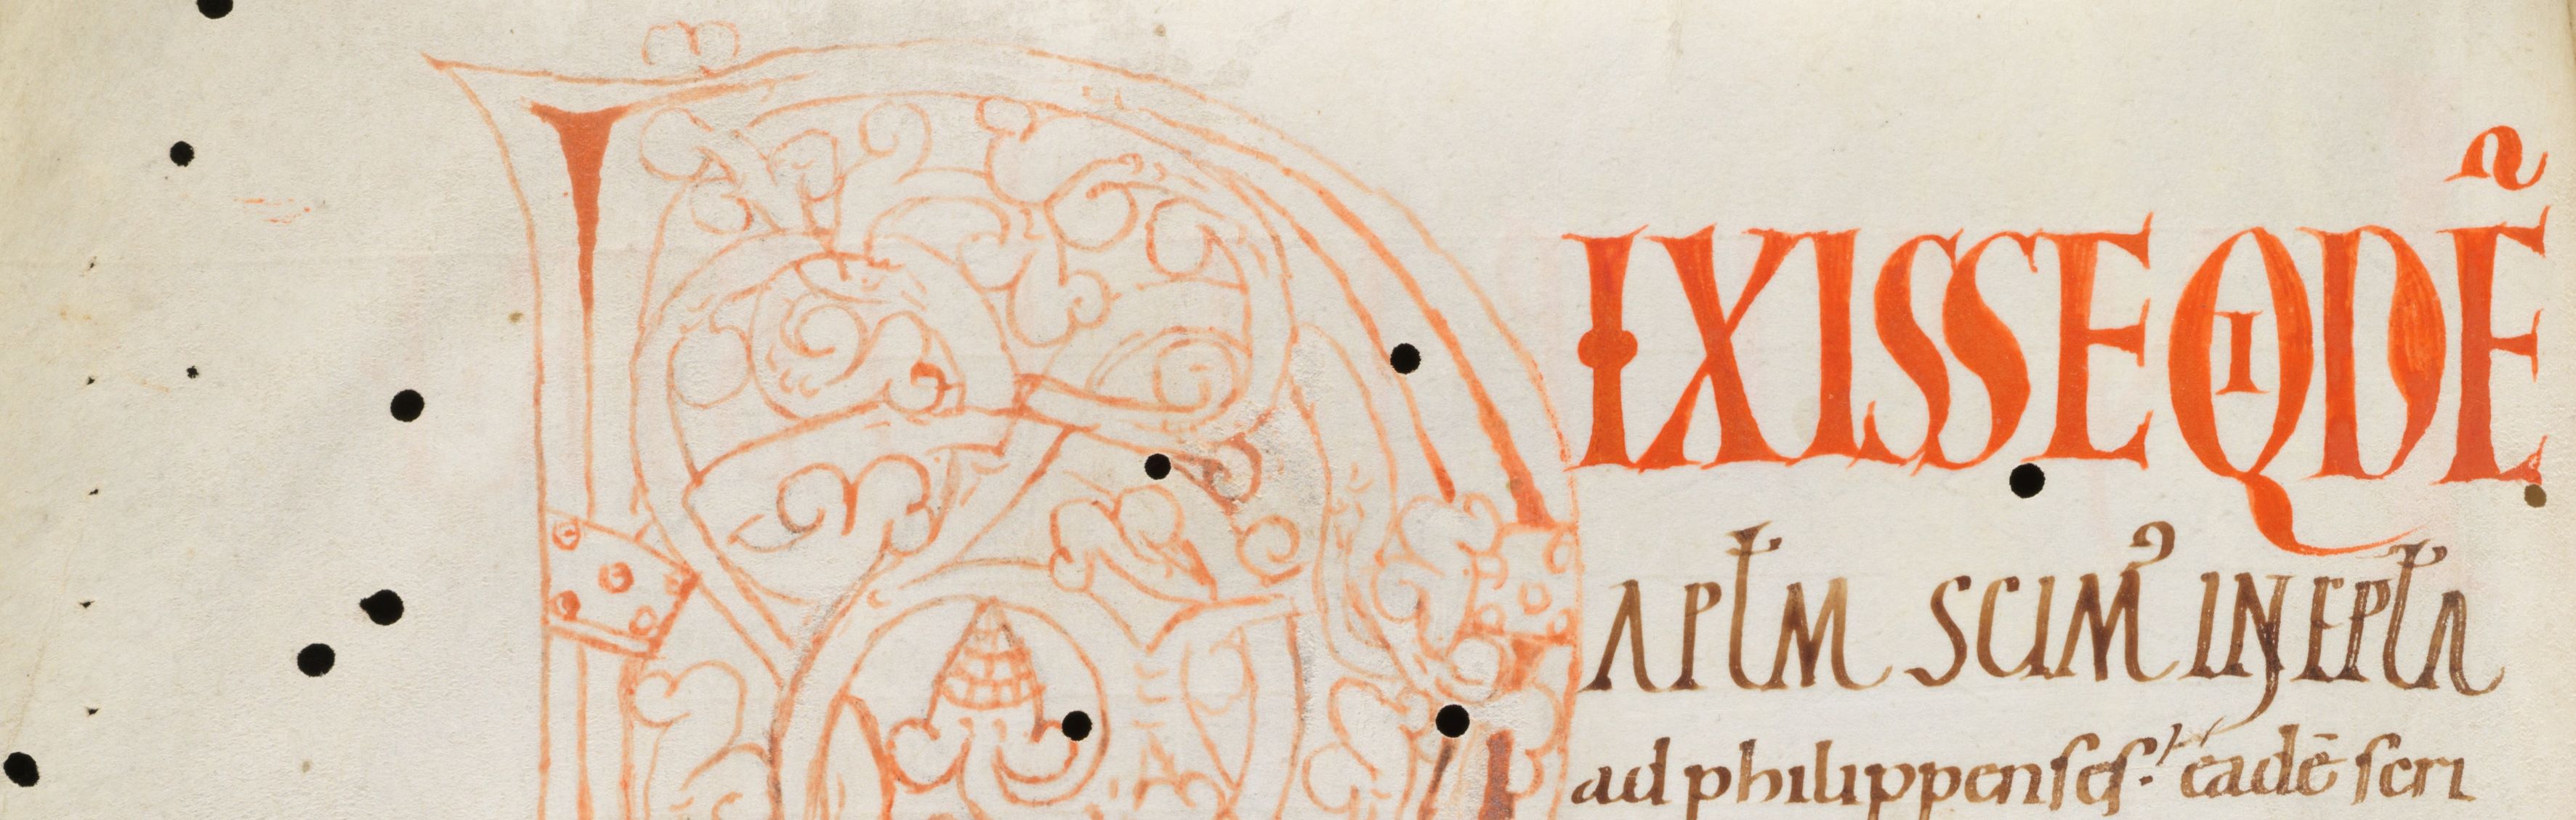 DIXISSE QIDẼ
APƚM SCIM' IN EPƚA
ad philippenses. eadē scri